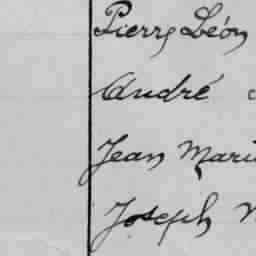 Pierre Léon
André
Jean Marie
Joseph